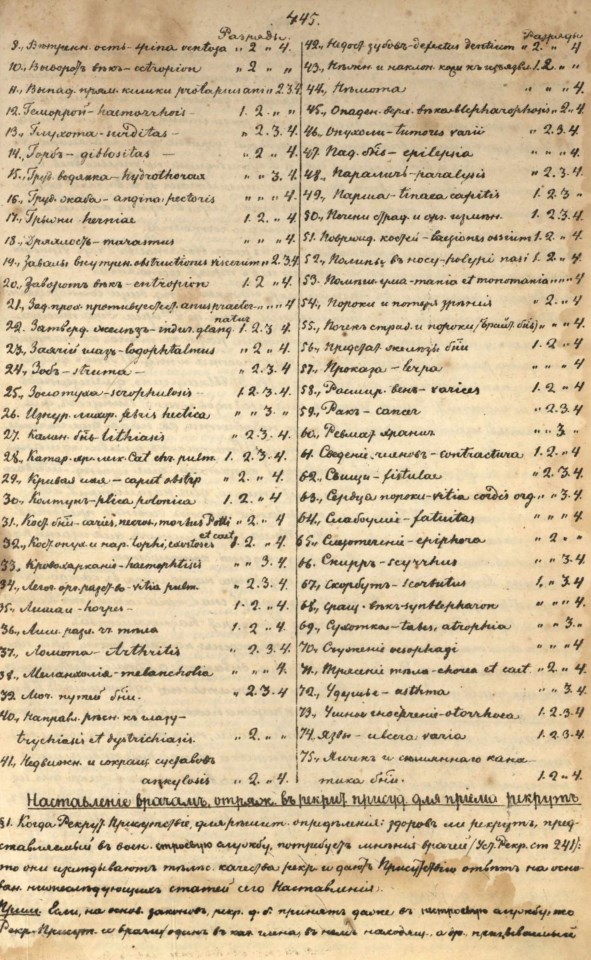 445.
Разряды.
9., Вѣтренн. ость - spina ventosa „ 2 „ 4.
10., Выворотъ вѣкъ - ectropion „ 2 „ „
11., Выпад. прям. кишки prolapsus ani „ 2.3.4.
12. Геморрой - haemorrhois 1. 2. „ „
13., Глухота - surditas - „ 2. 3. 4.
14., Горбъ - gibbositas - „ 2 „ 4.
15., Груд. водянка - hydrothorax „ „ 3. 4.
16., Груд. жаба - angina pectoris „ „ „ 4.
17., Грыжи herniae 1. 2. „ 4.
18., Дряхлость - marasmus „ „ „ 4.
19., Завалы внутрен. obstructiones viscerum „ 2.3.4.
20., Заворотъ вѣкъ - entropion 1. 2 „ 4.
21., Зад. прох. противуестест. anus praeter „ „ „ 4
natur
22., Затверд. железъ - indur. gland. 1. 2. 3 4.
23., Заячій глазъ - lagophtalmus „ 2 „ 4.
24., Зобъ - struma - „ 2. 3. 4
25., Золотуха - scrophulosis - 1. 2. 3. 4.
26. Изнур. лихор. febris hectica „ „ 3. „
27. Камен. бѣ lithiasis „ 2. 3. 4.
28., Катар. хр. лех. Cat. ch. pulm. 1. 2. 3. 4.
29., Кривая шея - caput obstip „ 2. „ 4.
30., Колтунъ - plica polonica 1. 2. „ 4
31., Кост. бѣи - caries, necros, morbus Potti „ 2 „ 4
et caet
32., Кост. опух. и нар. tophi, exostoses „ 2. „ 4
33., Кровохарканіе - haemoptisis „ „ 3. 4.
34., Легоч. орг. разст-во - vitia pulm. „ 2. 3. 4.
35., Лишаи - herpes - 1. 2. „ 4.
36., Лиш. разл. ч. тѣла 1. 2. „ 4
37., Ломота - Arthritis „ 2. 3. 4
38., Меланхолія - melancholia „ „ „ 4.
39. Моч. путей бѣи. „ 2. 3. 4
40., Направл. рѣсн. къ глазу -
trychiasis et dystrichiasis. „ 2. „ „
41., Недвижн. и сокращ. суставовъ
ankylosis „ 2. „ 4
Разряды
42., Недост. зубовъ - defectus dentium „ 2. „ 4
43., 1. 2. „ „
44., Нѣмота „ „ „ 4.
45., Опаден. верх. вѣка - blepharophosis „ 2 „ 4
46., Опухоли - tumores varii „ 2. 3. 4
47. Пад. бѣ - epilepsia „ „ „ 4.
48., Параличъ - paralysis „ 2. 3. 4.
49., Парша - tinaea capitis 1. 2. 3 „
50., Печени страд. и орг. измен. 1. 2. 3. 4.
51. Поврежд. костей - laesiones ossium 1. 2. „ 4.
52., Полипы въ носу - polypi nasi 1. 2 „ 4.
53. Помѣш. ума - mania et monomania „ „ „ 4
54., Пороки и потеря зрѣнія „ 2. „ 4
55., Почекъ страд. и пороки (брайт. бѣ) „ „ „ 4
56., Предстат. железы бѣи 1. 2 „ 4
57., Проказа - lepra „ „ „ 4
58., Расшир. венъ - varices 1. 2 „ 4
59., Ракъ - cancer „ 2. 3. 4
60., Ревмат. хронич. „ „ 3 „
61. Сведеніе членовъ - contractura 1. 2. „ 4
62., Свищи - fistulae „ 2. 3. 4
63., Сердца пороки - vitia cordis org. „ „ 3. 4
64., Слабоуміе - fatuitas „ „ „ 4
65., Слезотеченіе - epiphora „ 2. „ „
66., Скирръ - scyrrhus „ „ 3. 4
67., Скорбутъ - scorbutus 1. „ 3. 4
68., Сращ. вѣкъ - symblepharon „ „ „ 4
69., Сухотка - tabes, atrophia „ „ 3. „
70., Суженіе oesophagi „ „ „ 4
71., Трясеніе тѣла - chorea et caet. „ 2 „ 4
72., Удушье - asthma „ „ 3. 4
73., Ушное гноетеченіе - otorrhoea 1. 2. 3. 4
74. Язвы - ulcera varia 1. 2. 3. 4
75., Яичекъ и сѣменнаго кана-
тика бѣи. 1. 2. „ 4
Наставленіе врачамъ, отряж. въ рекрут. присут. для пріема рекрутъ
§1. Когда Рекрут. Присутствіе, для рѣшит. опредѣленія: здоровъ ли рекрутъ, пред-
ставляемый въ воен. строевую службу, потребуетъ мнѣнія врачей /Уст. Рекр. ст 241/:
то они изслѣдываютъ тѣлес. качества рекр. и даютъ Присутствію отвѣтъ на осно-
ван. нижеслѣдующихъ статей сего Наставленія.
Прим. Если, на основ. законовъ, рекр. д. б. принятъ даже въ нестроевую службу, то
Рекр. Присут. и врачи /одинъ въ кач. члена, въ немъ находящ. а др. призываемый